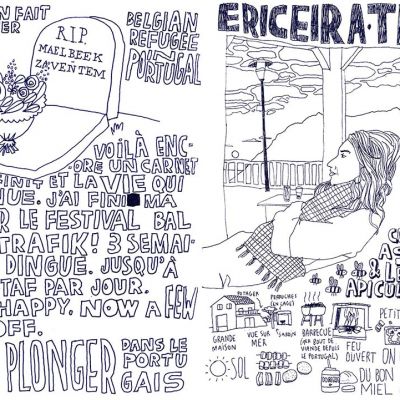 N FAIT
ER
R.I.P.
MAELBEEK
ZAVENTEM
BELGIAN
REFUGEE
PORTUGAL
VOILÀ ENC-
ORE UN CARNET
FINIT ET LA VIE QUI
NUE. J'AI FINI MA
R LE FESTIVAL BAL
TRAFIK! 3 SEMAI-
DINGUE. JUSQU'À
TAF PAR JOUR.
HAPPY. NOW A FEW
OFF.
PLONGER
DANS LE
PORTU
GAIS
ERICEIRA.T
AS
& LE
APICUL
POTAGER
PERRUCHES
(EN CAGE)
GRANDE
MAISON
VUE SUR
MER
BARBECUE
(RA BOUT DE
VIANDE DEPUIS
LE PORTUGAL)
FEU
OUVERT
PETIT
ON
SOL
DU BON
MIEL